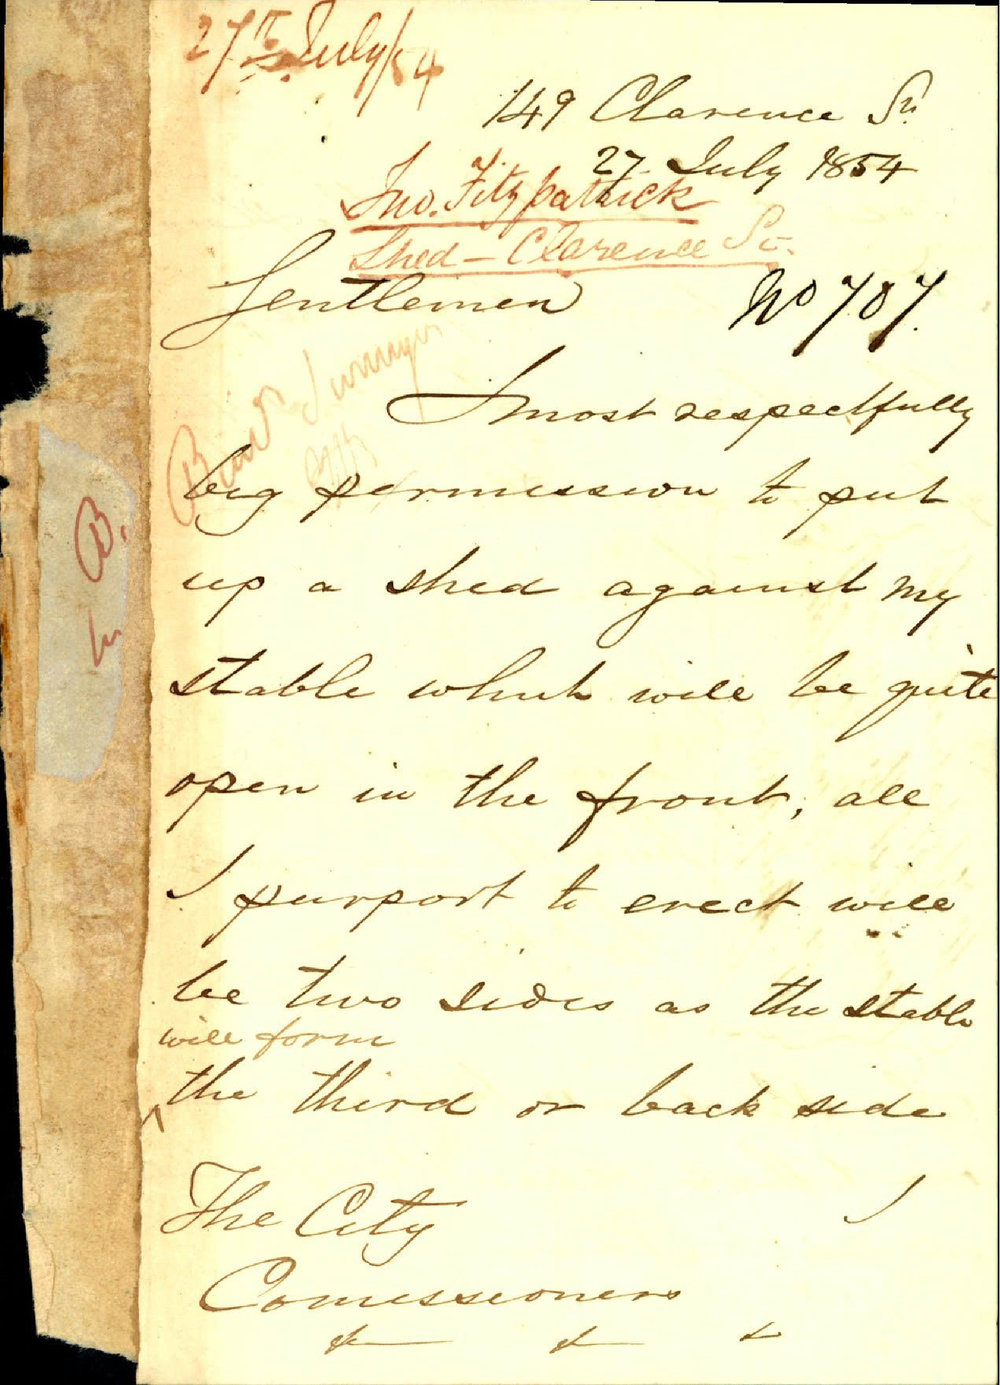 27th July/54
149 Clarence St.
27 July 1854
Jno. Fitzpatrick
Shed - Clarence St.
Gentlemen
No 707.
I most respectfully
beg permission to put
up a shed against my
stable which will be quite
open in the front, all
I purport to erect will
be two sides as the stable
will form
^ the third or back side
I
The City
Comissioners
&c &c &c
B.